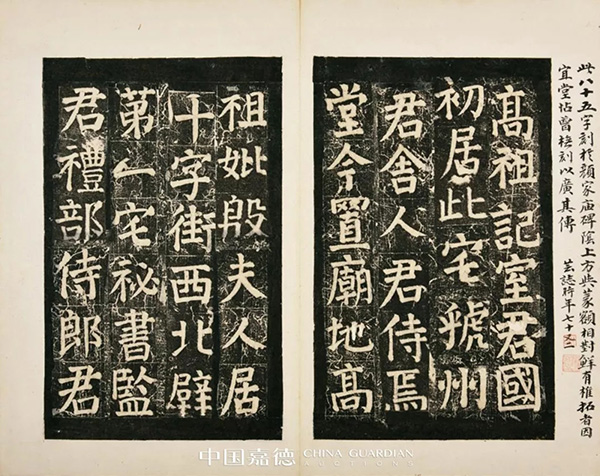 此八十五字刻於顏家庙碑陰上方與篆額相對鮮有椎拓者因
宜堂帖曾橅刻以廣其傳
芸誌時年七十又二
髙祖記室君國
初居此宅虢州
君舍人君侍焉
堂今置廟地髙
祖妣殷夫人居
十字街西北壁
苐一宅祕書監
君禮部侍郎君
中国嘉德 CHINA GUARDIAN
AUCTIONS